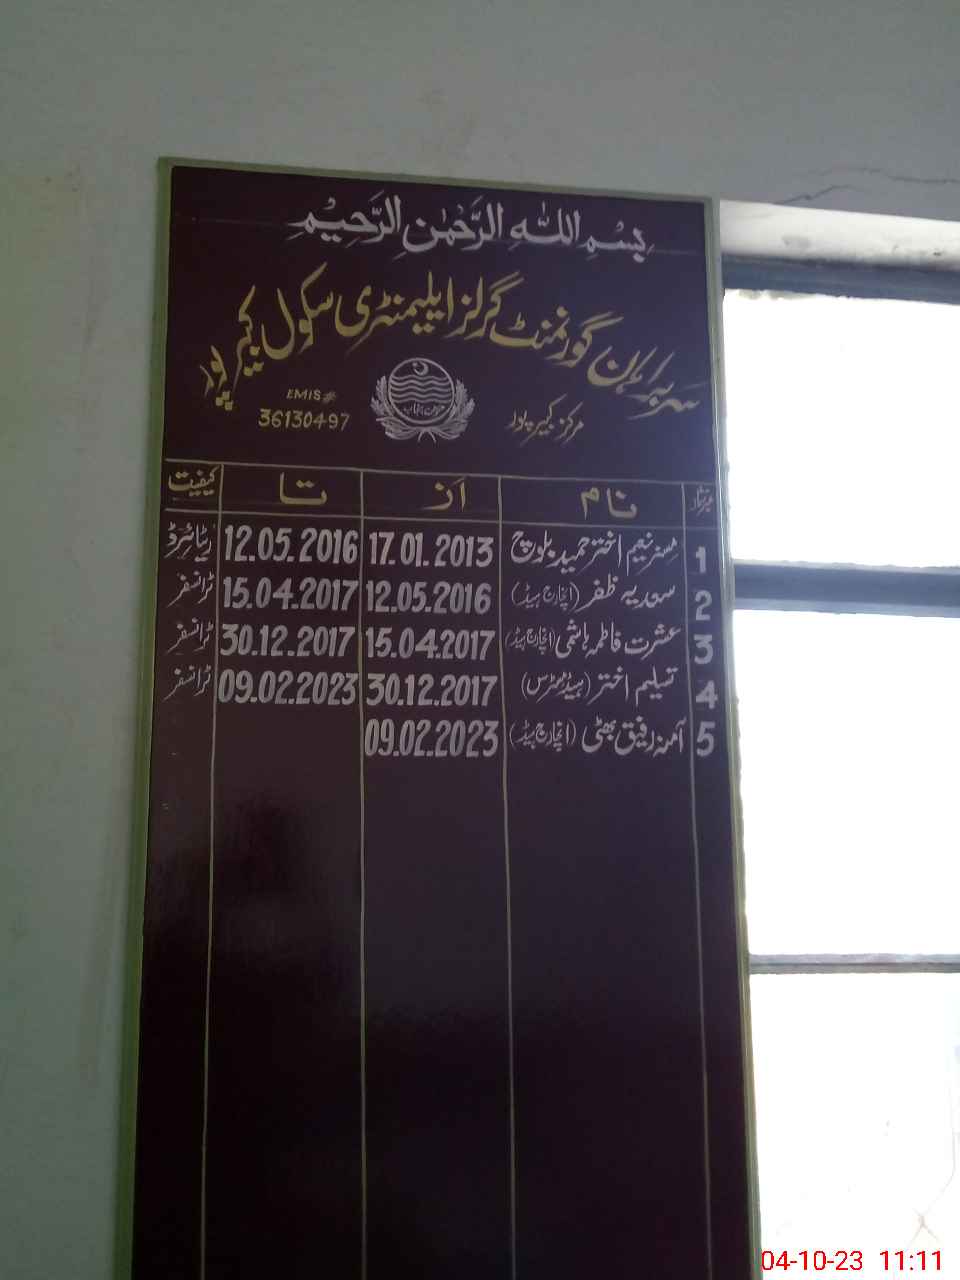 بِسْمِ اللهِ الرَّحْمٰنِ الرَّحِيْمِ
سربراہان گورنمنٹ گرلز ایلیمنٹری سکول کبیر پور
مرکز کبیر پور
حکومت پنجاب
EMIS#
36130497
نمبر شمار نام از تا کیفیت
1 مسز نعیم اختر حمید بلوچ 17.01.2013 12.05.2016 ریٹائرڈ
2 سعدیہ ظفر (انچارج ہیڈ) 12.05.2016 15.04.2017 ٹرانسفر
3 عشرت فاطمہ ہاشمی (انچارج ہیڈ) 15.04.2017 30.12.2017 ٹرانسفر
4 تسلیم اختر (ہیڈ مسٹرس) 30.12.2017 09.02.2023 ٹرانسفر
5 آمنہ رفیق بھٹی (انچارج ہیڈ) 09.02.2023
04-10-23 11:11